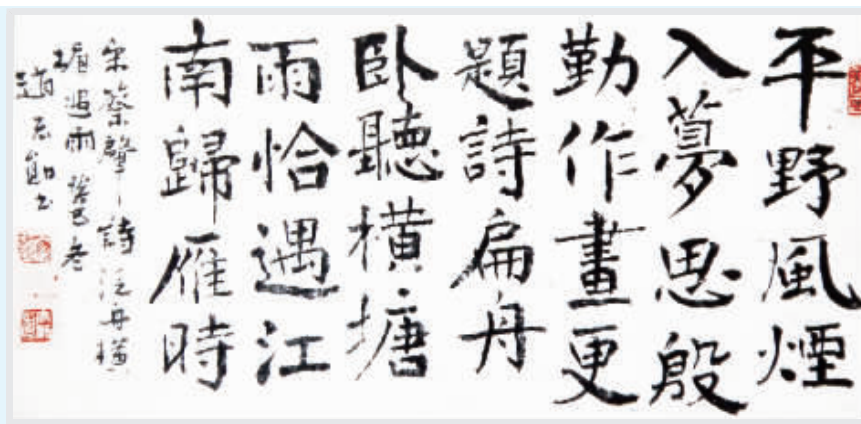 平野風煙
入夢思殷
勤作畫更
題詩扁舟
卧聽橫塘
雨恰遇江
南歸雁時
宋蔡肇詩泛舟橫
塘遇雨癸巳冬
書